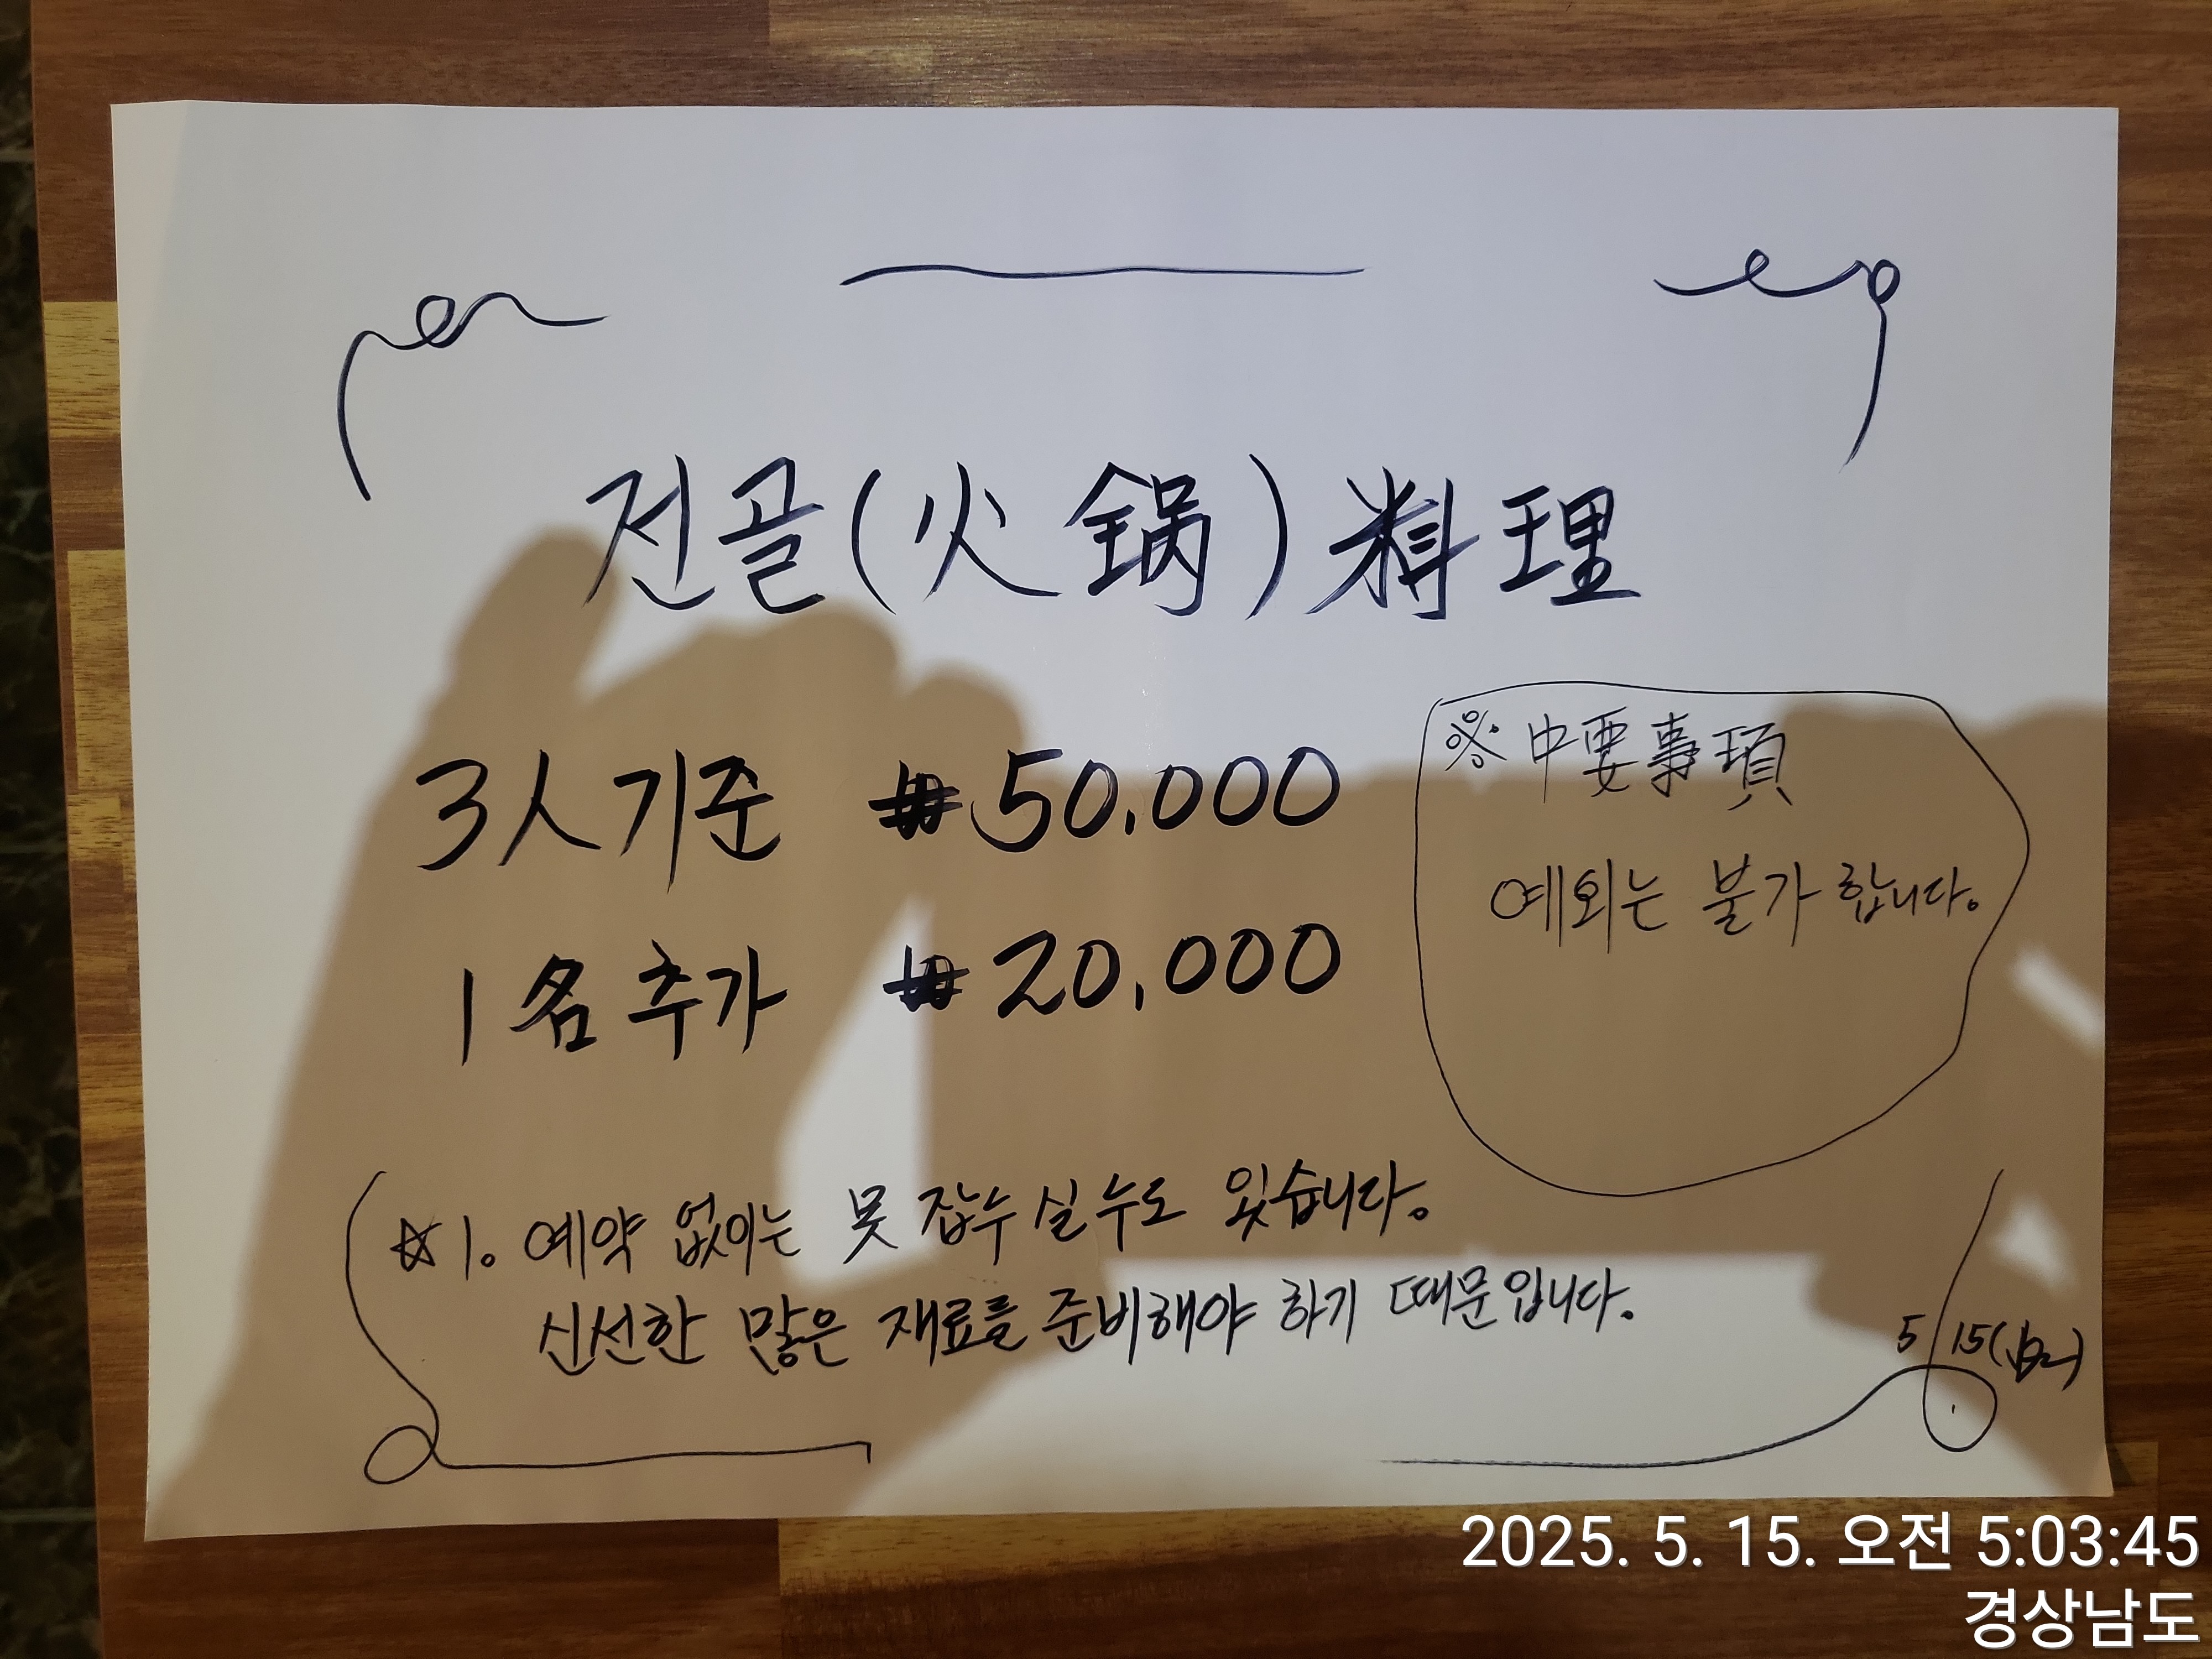 전골(火锅)料理
3人기준 ₩50,000
1名추가 ₩20,000
※中要事項
예외는 불가합니다.
☆1. 예약 없이는 못 잡수실 수도 있습니다.
신선한 많은 재료를 준비해야 하기 때문입니다.
5/15
2025. 5. 15. 오전 5:03:45
경상남도